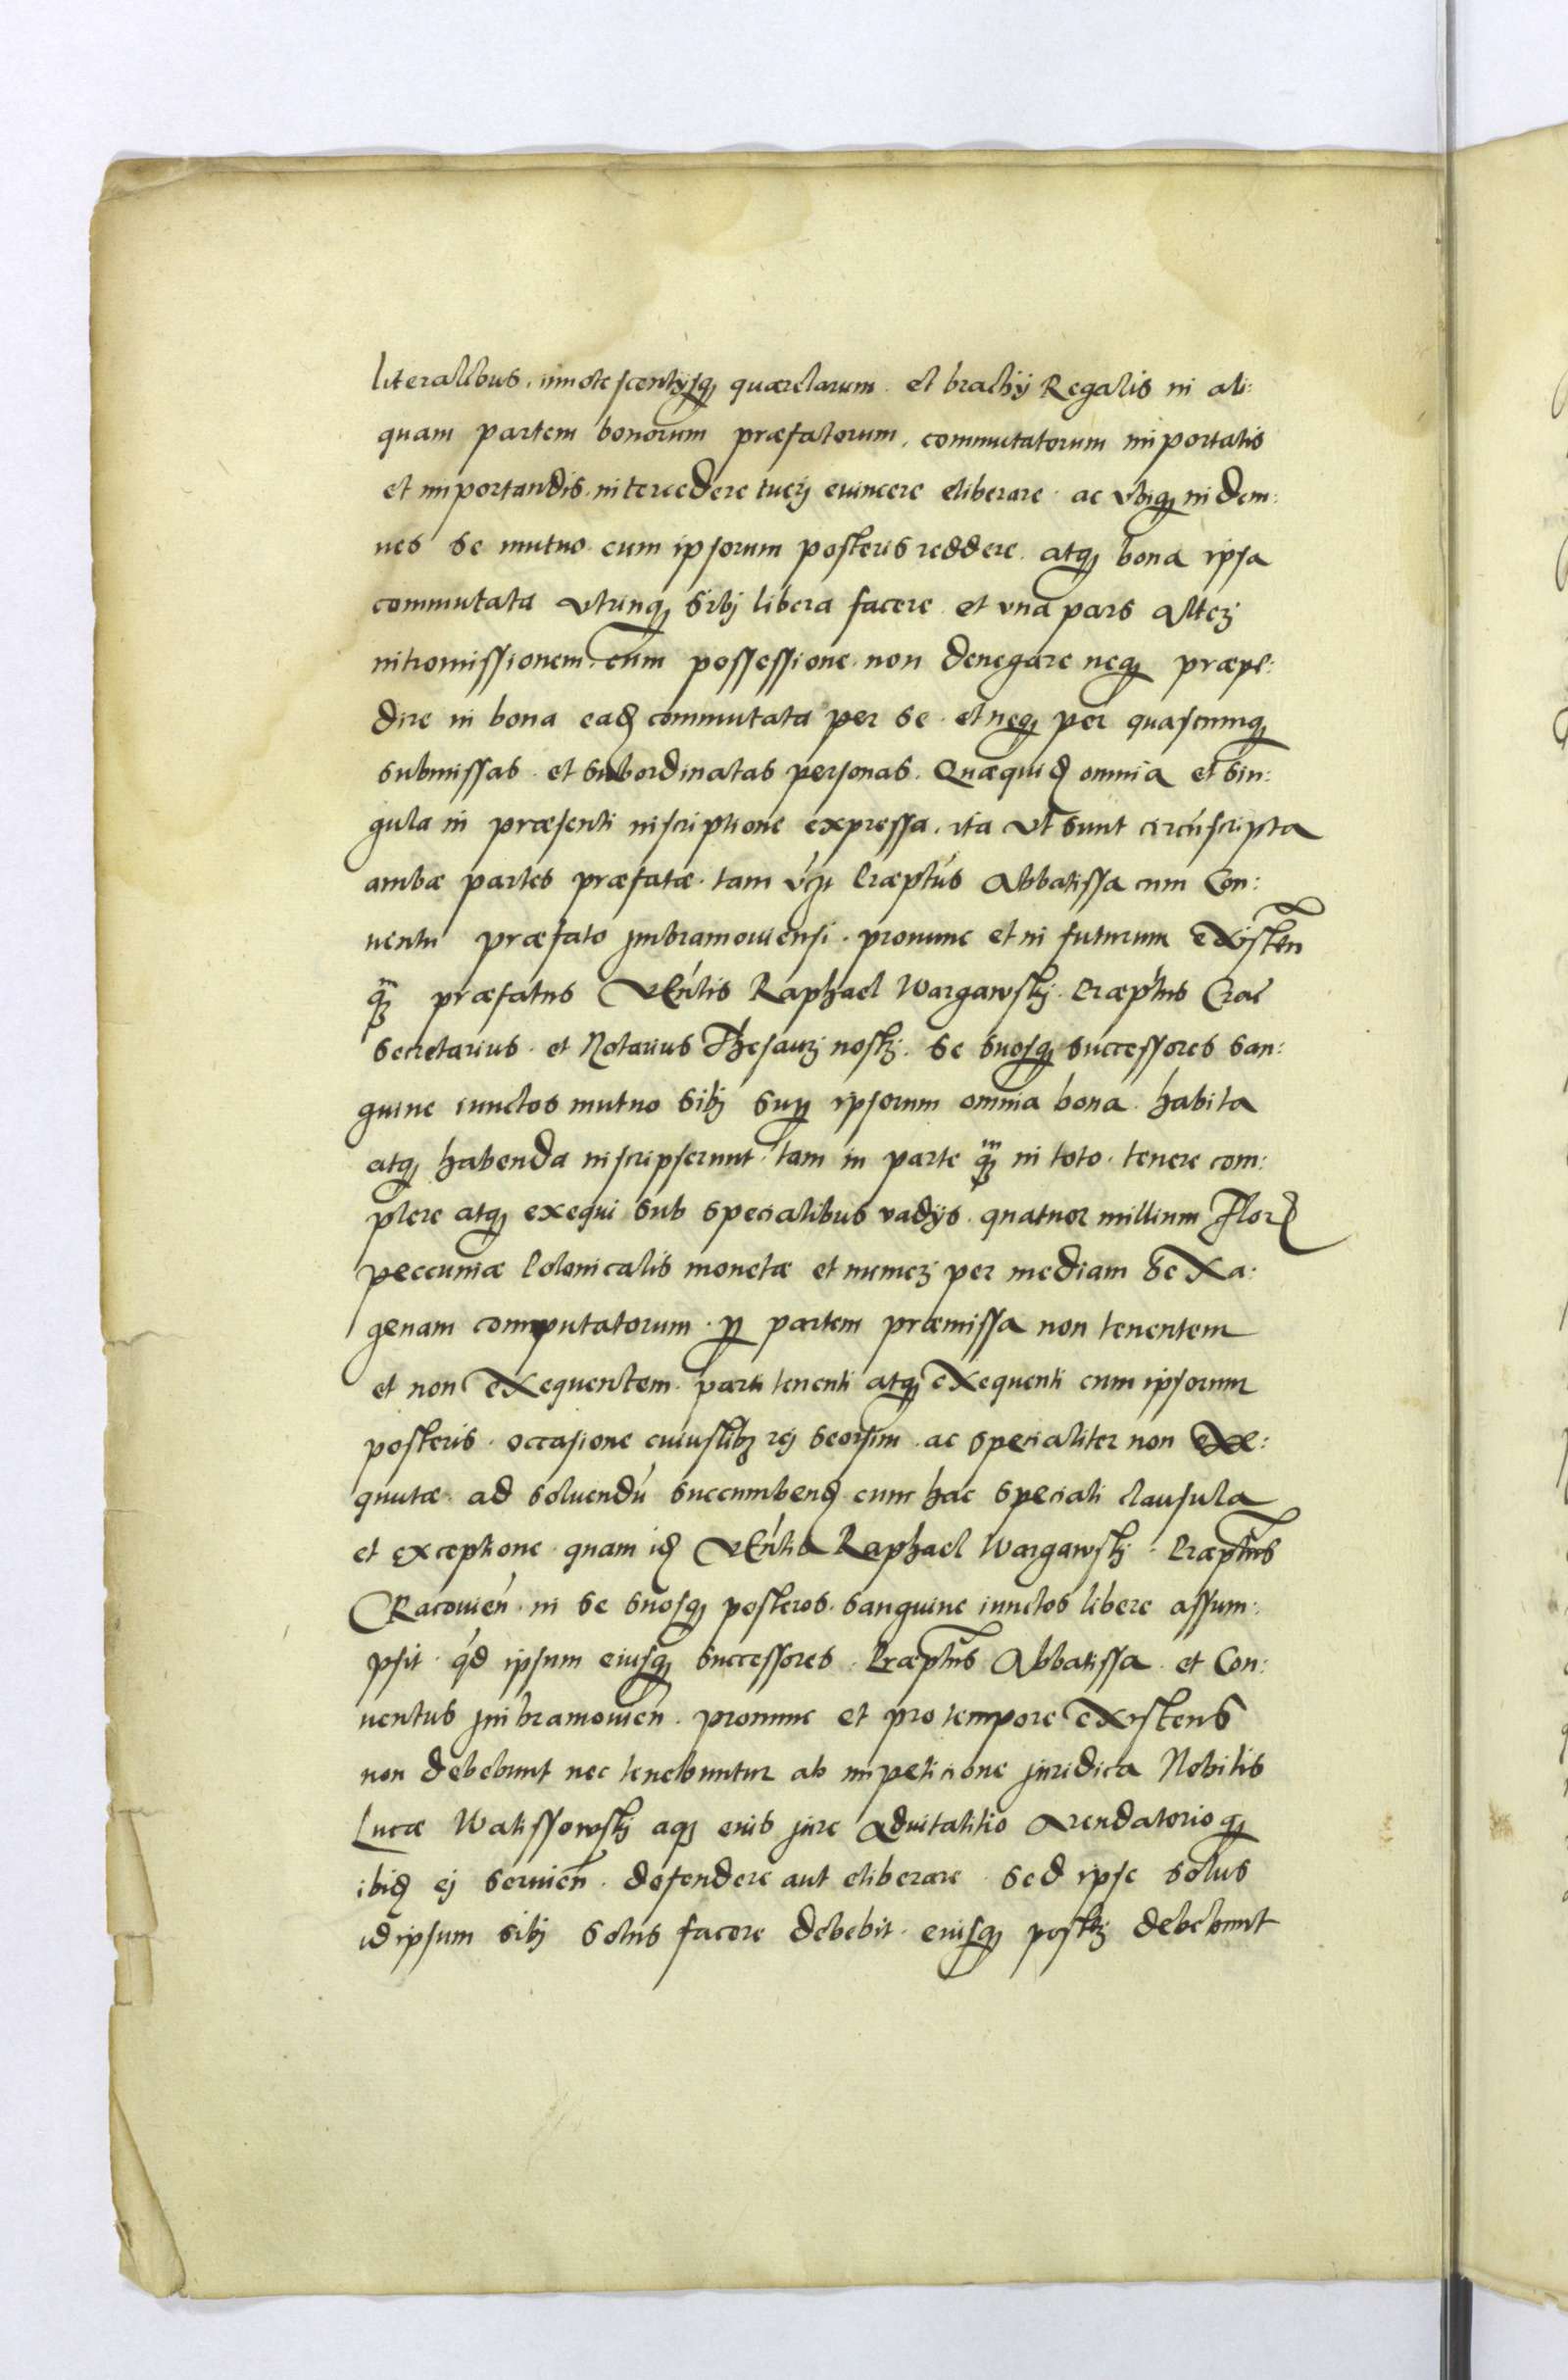 literalibus, innotescentijsq3 quærelarum et brachij Regalis in ali:
quam partem bonorum præfatorum, commutatorum importatis
et importandis intercedere tuerj euincere eliberare ac vbiq3 indem:
nes se mutuo cum ipsorum posteris reddere atq3 bona ipsa
commutata vtrinq3 sibj libera facere et vna pars alterj
intromissionem cum possessione non denegare neq3 præpe:
dire in bona eadꝫ commutata per se et neq3 per quascunq3
submissas et subordinatas personas. Quæquidꝫ omnia et sin:
gula in præsenti inscriptione expressa, ita vt sunt circúscripta
ambæ partes præfatæ tam Præptus Abbatissa cum Con:
uentu præfato jmbramouiensi pronunc et in futurum existen
qꝫm præfatus VEnlis Raphael Wargawskj Præptus Crac
Secretarius et Notarius Thesaurj nostrj se suosq3 successores san:
guine iunctos mutuo sibj sup ipsorum omnia bona habita
atq3 habenda inscripserunt tam in parte qꝫm in toto tenere com:
plere atq3 exequi sub specialibus vadijs quatuor millium Flor
peccuniæ Polonicalis monetæ et numerj per mediam sexa:
genam computatorum p partem præmissa non tenentem
et non exequentem parti tenenti atq3 exequenti cum ipsorum
posteris occasione cuiuslibꝫ rej seorsim ac specialiter non exe:
quutæ ad soluendú succumbendꝫ cum hac speciali clausula
et exceptione quam idꝫ VEnlis Raphael Wargawskj Præptus
Cracouień in se suosq3 posteros sanguine iunctos libere assum:
psit qd ipsum eiusq3 successores Præptus Abbatissa et Con:
uentus jmbramouień pronunc et pro tempore existens
non debebunt nec tenebuntur ab impeticione juridica Nobilis
Lucæ Walissowskj aqꝫ eius jure aduitalitio arendatorioq3
ibidꝫ ej seruień defendere aut eliberare sed ipse solus
id ipsum sibj solus facere debebit eiusq3 posterj debebunt